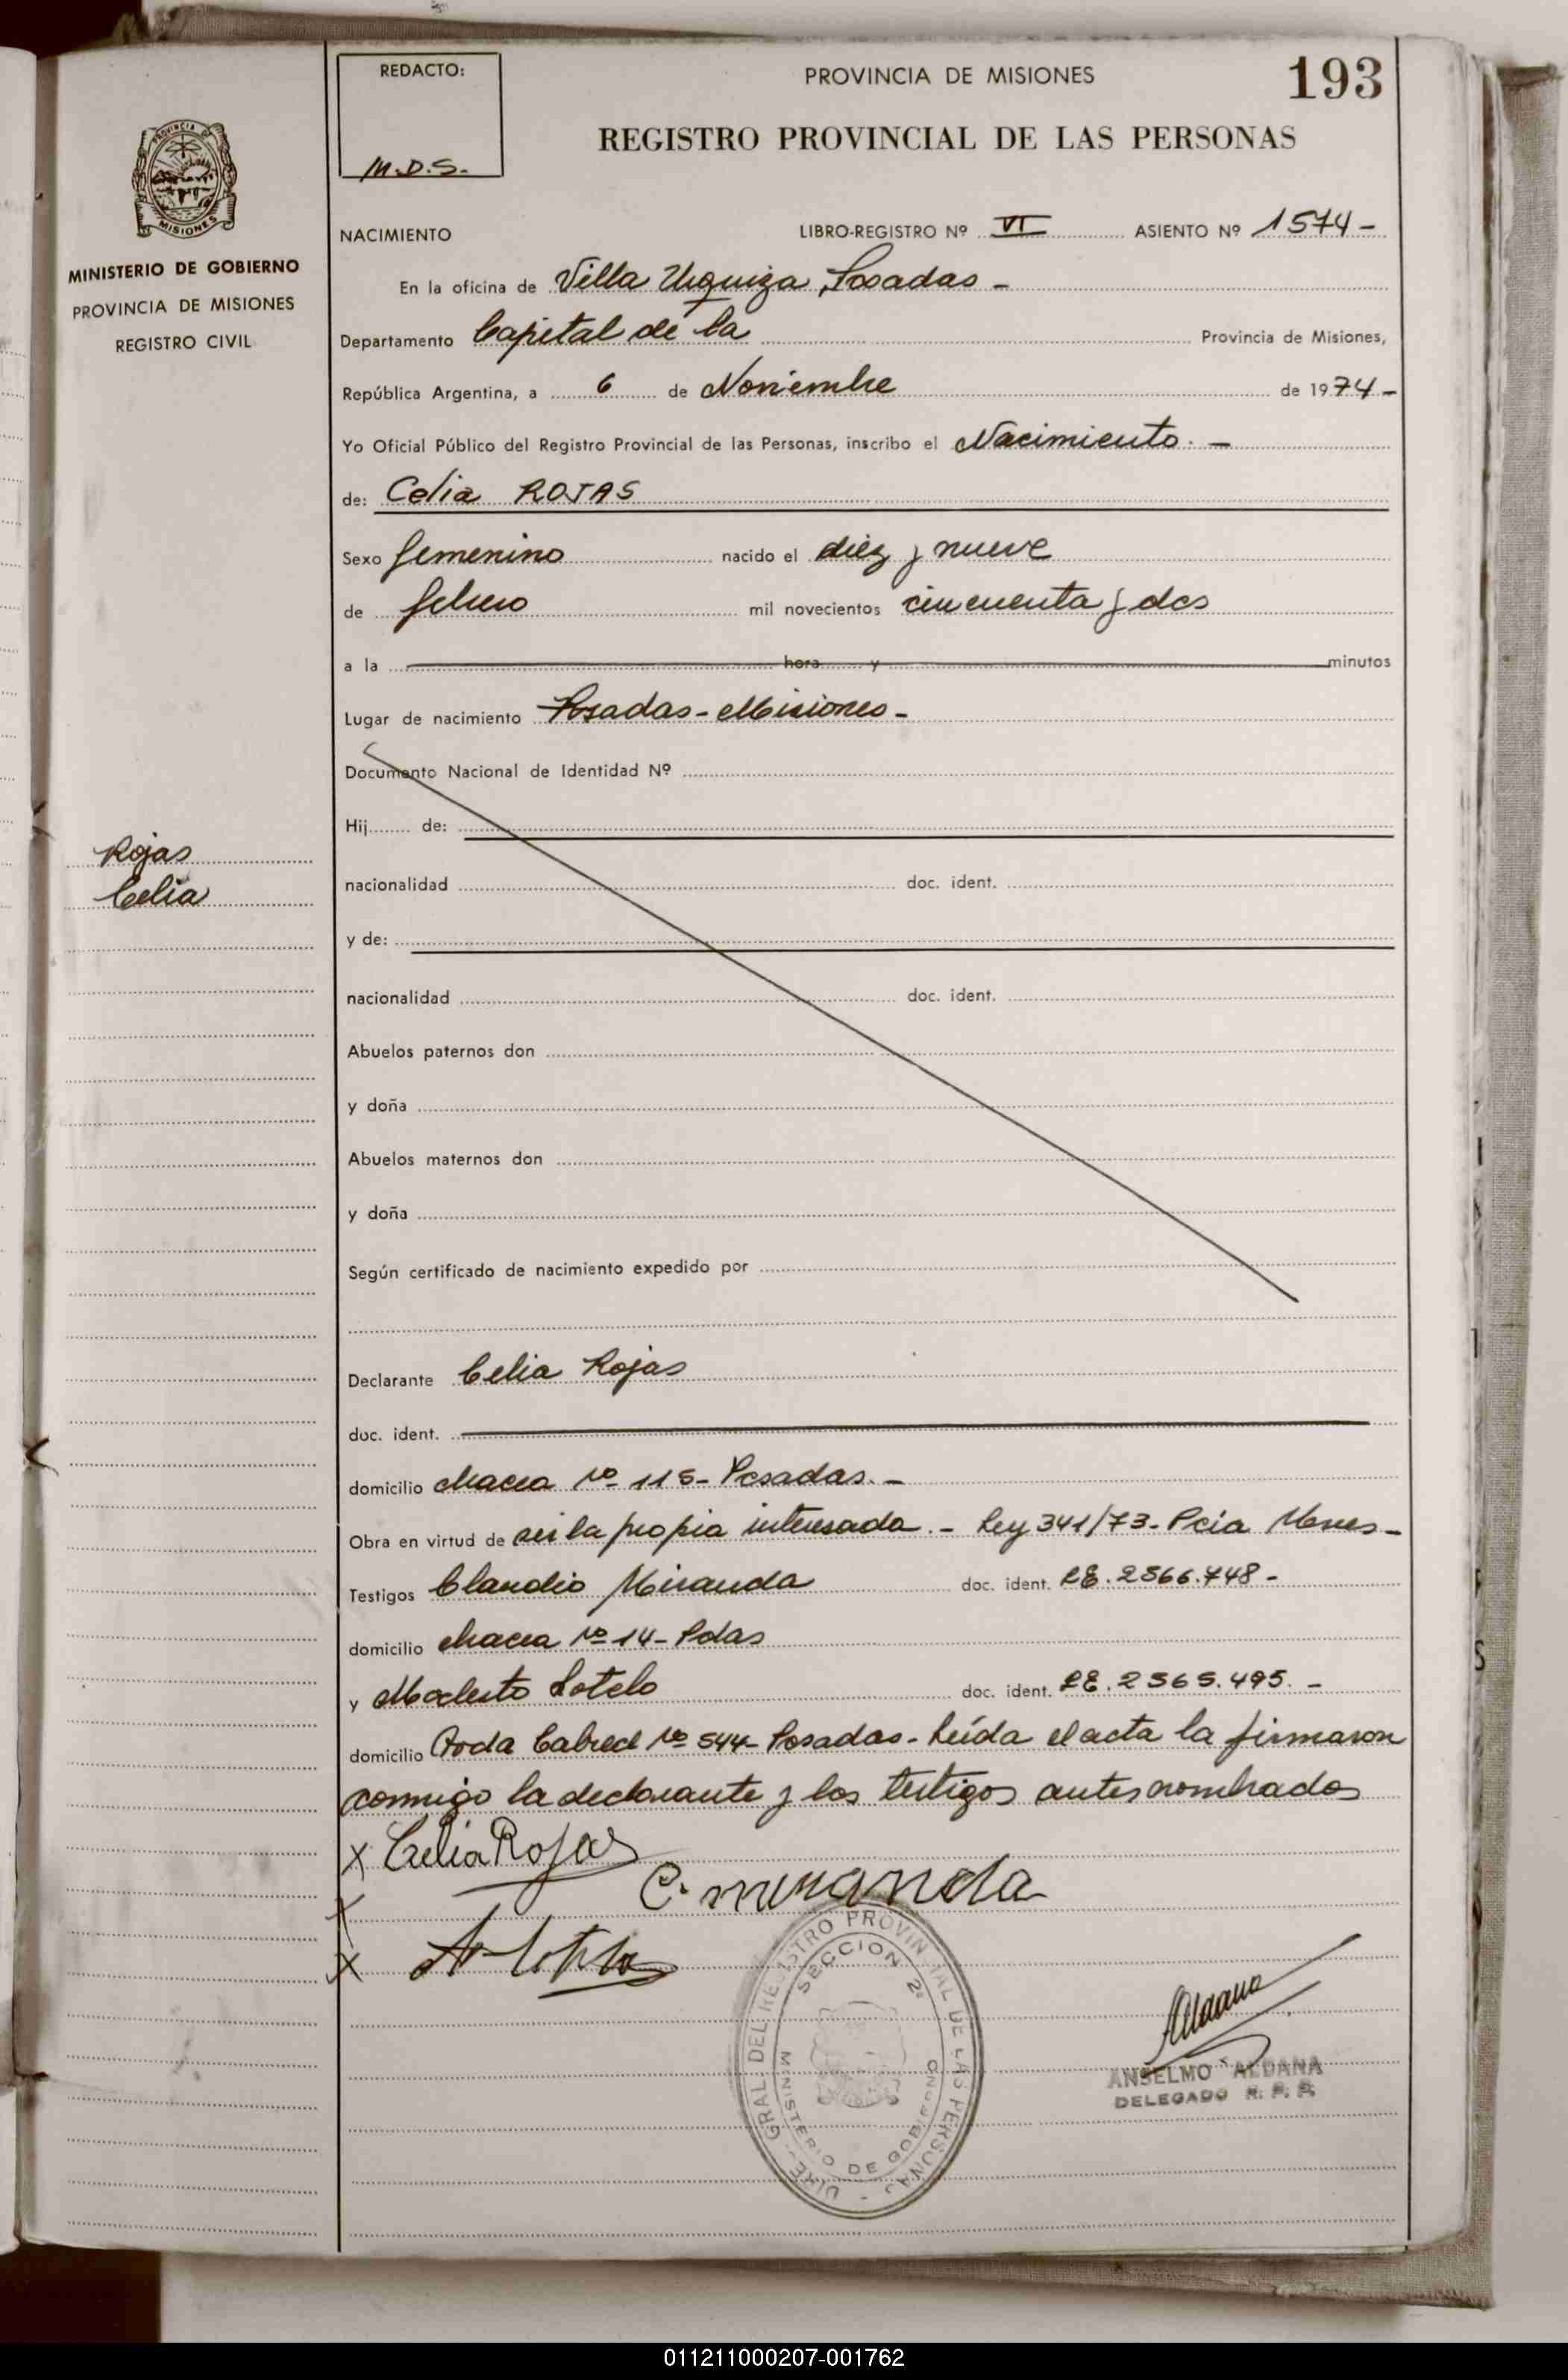 REDACTO:
M.D.S.
PROVINCIA DE MISIONES
193
REGISTRO PROVINCIAL DE LAS PERSONAS
PROVINCIA D
MISIONES
MINISTERIO DE GOBIERNO
PROVINCIA DE MISIONES
REGISTRO CIVIL
Rojas
Celia
NACIMIENTO LIBRO-REGISTRO Nº VI ASIENTO Nº 1574-
En la oficina de Villa Urquiza, Posadas -
Departamento Capital de la Provincia de Misiones,
República Argentina, a 6 de Noviembre de 1974-
Yo Oficial Público del Registro Provincial de las Personas, inscribo el Nacimiento. -
de: Celia ROJAS
Sexo femenino nacido el diez y nueve
de febrero mil novecientos cincuenta y dos
a la hora y minutos
Lugar de nacimiento Posadas - Misiones -
Documento Nacional de Identidad Nº
Hij de:
nacionalidad doc. ident.
y de:
nacionalidad doc. ident.
Abuelos paternos don
y doña
Abuelos maternos don
y doña
Según certificado de nacimiento expedido por
Declarante Celia Rojas
doc. ident.
domicilio chacra Nº 115- Posadas. -
Obra en virtud de ser la propia interesada. - Ley 341/73- Pcia Mnes-
Testigos Claudio Miranda doc. ident. LE. 2566.748 -
domicilio chacra Nº 14- Pdas
y Modesto Sotelo doc. ident. LE. 2565.495. -
domicilio Avda Cabred Nº 544- Posadas- Leída el acta la firmaron
conmigo la declarante y los testigos antes nombrados
X Celia Rojas
C. miranda
X
Aldana
ANSELMO ALDANA
DELEGADO R. P. P.
DIRE. GRAL. DEL REGISTRO PROVINCIAL DE LAS PERSONAS -
SECCION 2ª
MINISTERIO DE GOBIERNO
011211000207-001762